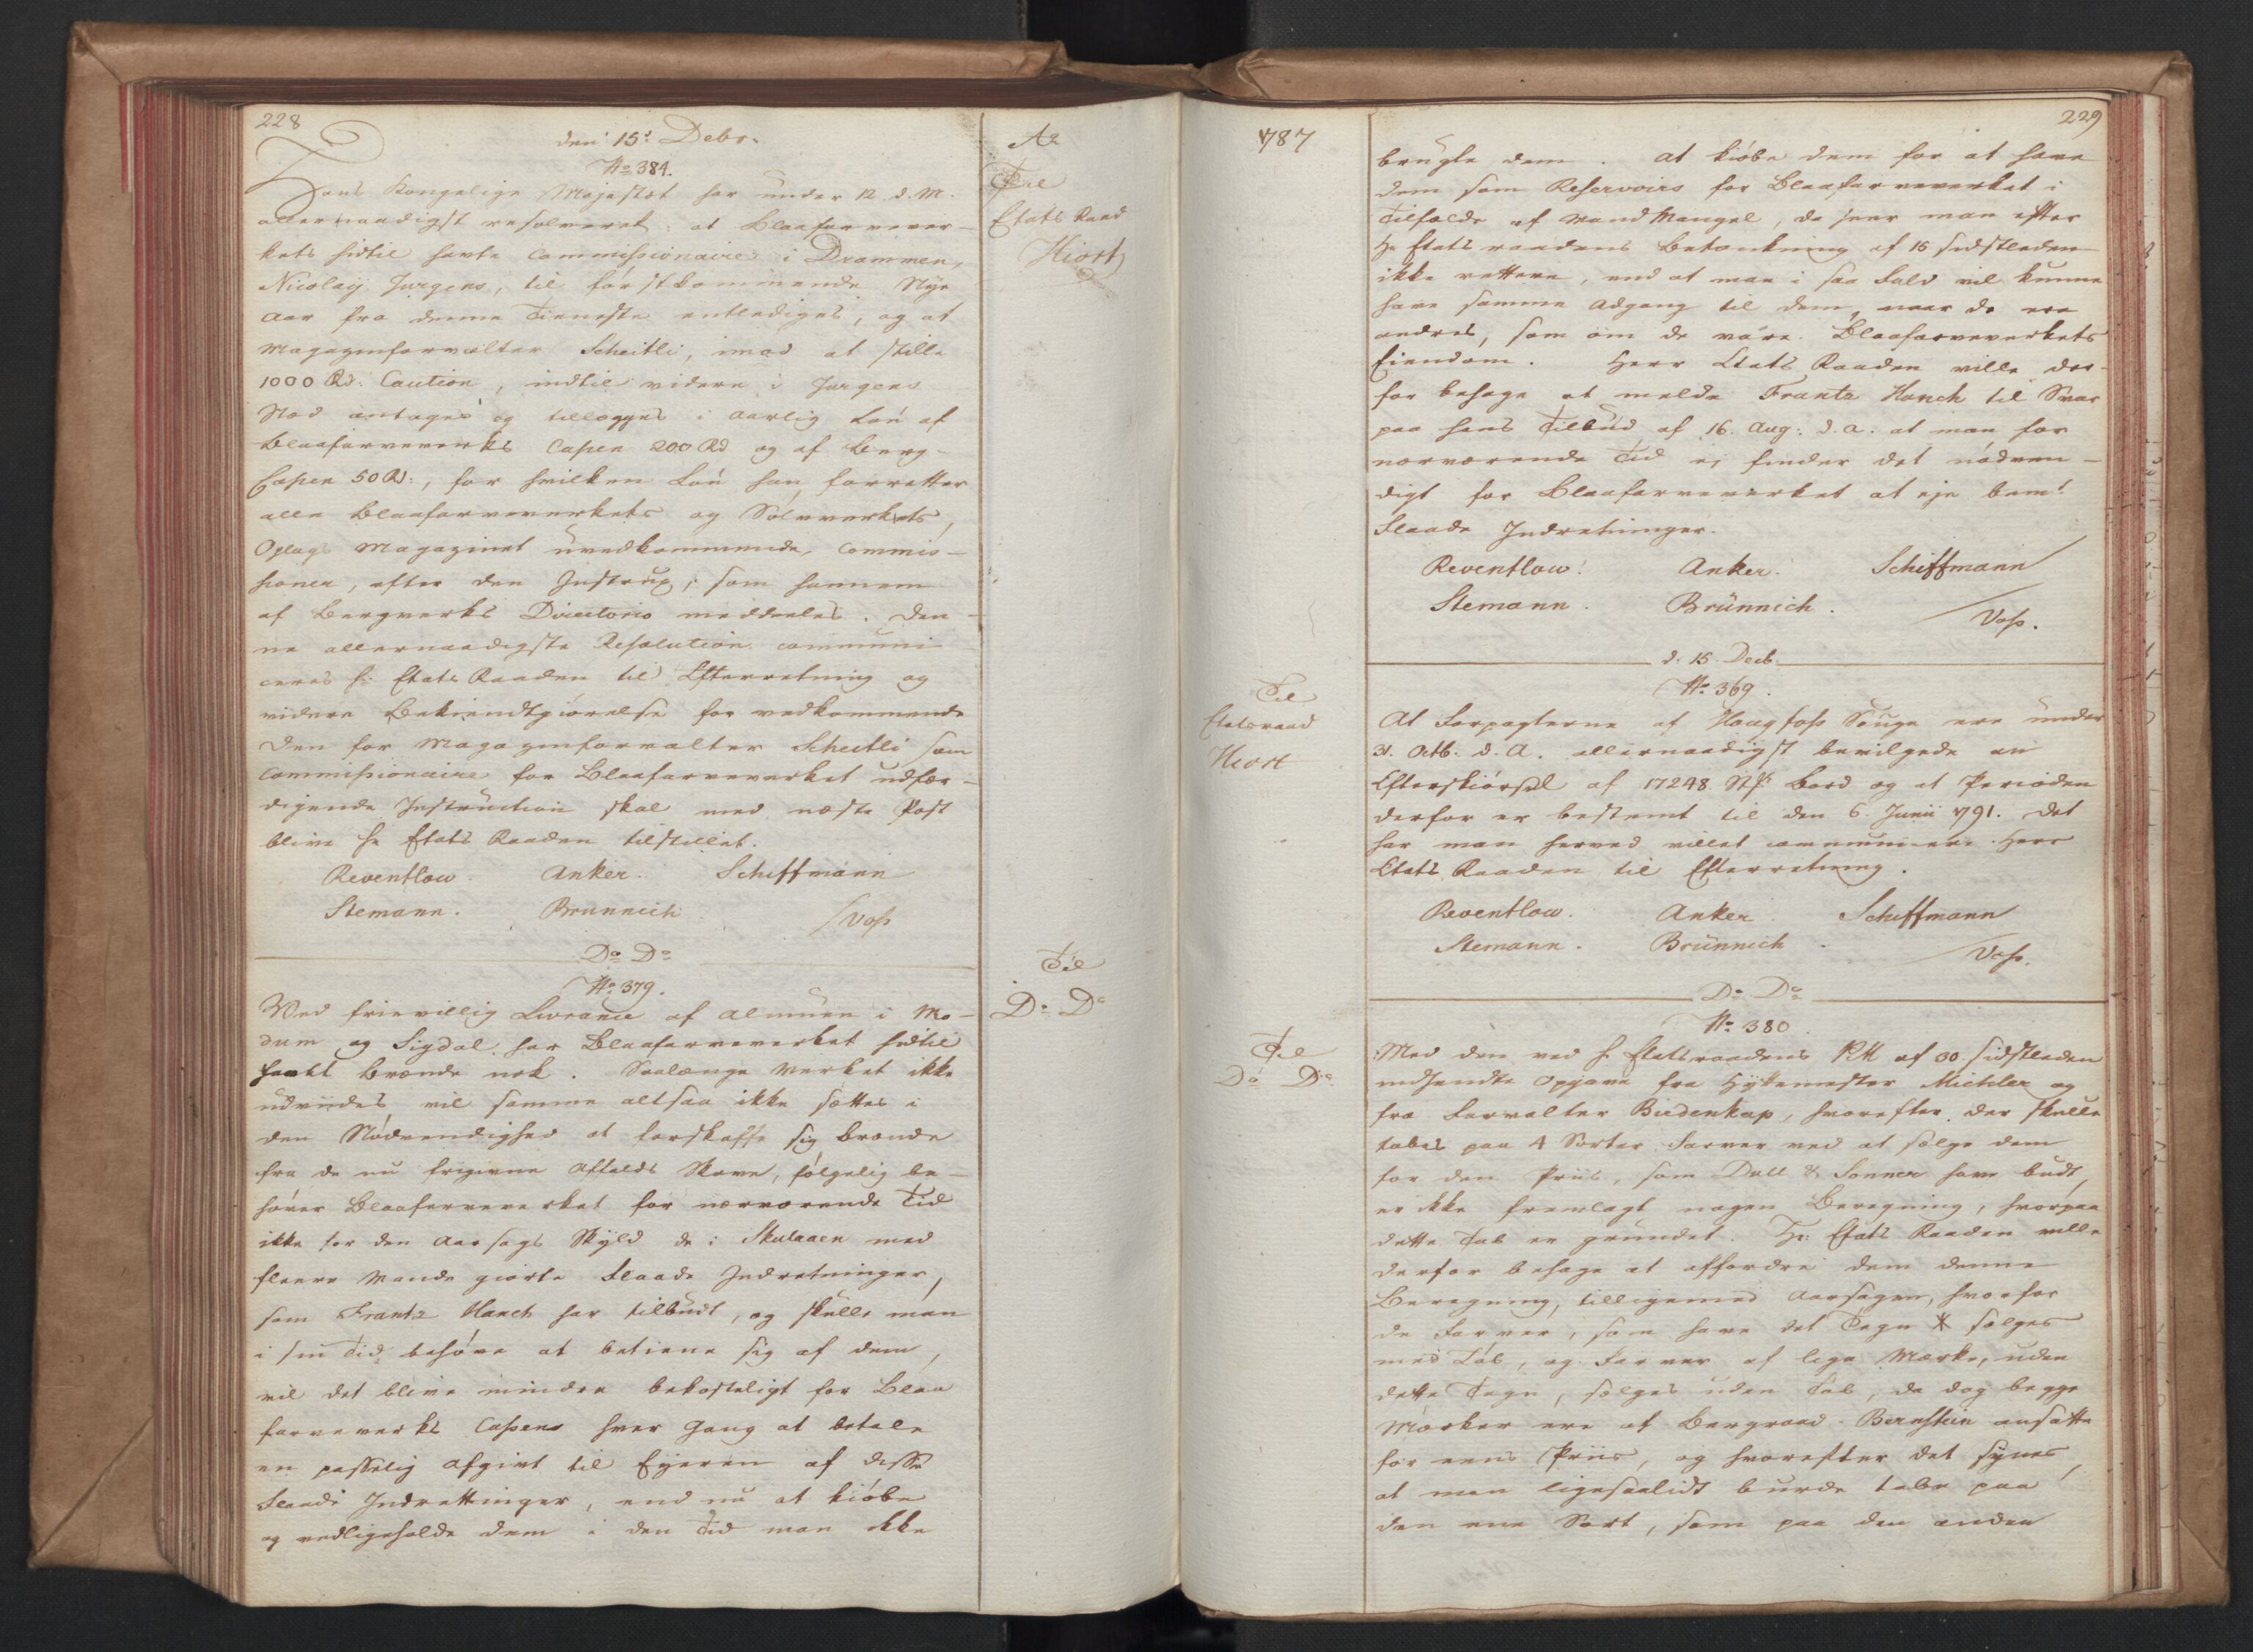 228
den 15de Debr.
No 384.
Hans Kongelige Majestæt har under 12 d. M.
allernaadigst resolveret: at Blaafarvever-
kets hidtil havte Commissionaire i Drammen,
Nicolay Jurgens, til förstkommende Nye
Aar fra denne Tieneste entlediges, og at
Magazinforvalter Scheitli, imod at stille
1000 Rd: Caution, indtil videre i Jurgens
Stæd antages og tillægges i aarlig Lön af
Blaafarveverkets Cassen 200 Rd og af Berg-
Cassen 50 Rd:, for hvilken Lön han forretter
alle Blaafarveverkets og Sölvverkets,
Oplags Magazinet uvedkommende, Commis-
sioner, efter den Instrux, som hannem
af Bergverks Directorio meddeeles. Den-
ne allernaadigste Resolution communi-
ceres Hr Etats Raaden til Efterretning og
videre Bekiendtgiörelse for vedkommende
Den for Magazinforvalter Scheitli som
Commissionaire for Blaafarveverket udfær-
digende Instruction skal med næste Post
blive Hr Etats Raaden tilstillet.
Reventlow. Anker. Schiffmann
Stemann. Brünnich /Voss
Do Do
No 379.
Ved frievillig Leverance af Almuen i Mo-
dum og Sigdal har Blaafarveverket hidtil
havt Brænde nok. Saalænge Verket ikke
udvides, vil samme altsaa ikke sættes i
den Nödvendighed at forskaffe sig Brænde
fra de nu frigivne Affalds Skove, fölgelig be-
höver Blaafarveverket for nærværende Tid
ikke for den Aarsags Skyld de i Skulaaen med
fleere Vande giorte Flaade Indretninger,
som Frantz Hanch har tilbudt, og skulle man
i sin Tid behöve at betiene sig af dem,
vil det blive mindre bekosteligt for Blaa
farveverks Cassens hver Gang at betale
en passelig Afgivt til Eyeren af disse
Flaade Indrettinger, end nu at kiöbe
og vedligeholde dem i den Tid man ikke
Ao
Til
Etats Raad
Hiort
Til
Do Do
1787
229
brugte dem. At kiöbe dem for at have
dem som Reservoirs for Blaafarveverket i
Tilfælde af Vand Mangel, da seer man efter
Hr Etatsraadens Betænkning af 16 sidstleden
ikke rettere, end at man i saa Fald vil kunne
have samme Adgang til dem, naar de ere
andres, som om de vare Blaafarveverkets
Eiendom. Herr Etats Raaden ville der-
for behage at melde Frantz Hanch til Svar
paa hans Tilbud af 16. Aug: d. A. at man for
nærværende Tid ej finder det nödven-
digt for Blaafarveverket at eje bemte
Flaade Indretninger.
Reventlow. Anker. Schiffmann
Stemann. Brünnich. /Voss.
d. 15 Decb.
No 369.
Til
Etatsraad
Hiort
At Forpagterne af Haugfoss Sauge ere under
31. Octb. d. A. allernaadigst bevilgede en
Efterskiörsel af 17248 Stk Bord og at Perioden
derfor er bestemt til den 6. Junii 1791. Det
har man herved villet communicere Herr
Etats Raaden til Efterretning.
Reventlow. Anker. Schiffmann
Stemann. Brünnich. /Voss.
Do Do
No 380.
Til
Do Do
Med den ved Hr Etatsraadens PM af 30 sidstleden
indsendte Opgave fra Hyttemester Michler og
fra Forvalter Biedenkap, hvorefter der skulle
tabes paa 4 Sorter Farver ved at sælge dem
for den Priis, som Dull & Sonner have budt,
er ikke fremlagt nogen Beregning, hvorpaa
dette Tab er grundet. Hr: Etats Raaden ville
derfor behage at affordre dem denne
Beregning, tilligemed Aarsagen, hvorfor
de Farver, som have det Tegn * sælges
med Tab, og Farver af lige Mærke, uden
dette Tegn, sælges uden Tab, da dog begge
Mærker ere af Bergraad Bernstein ansatte
for eens Priis, og hvorefter det synes,
at man ligesaalidt burde tabe paa
den ene Sort, som paa den anden